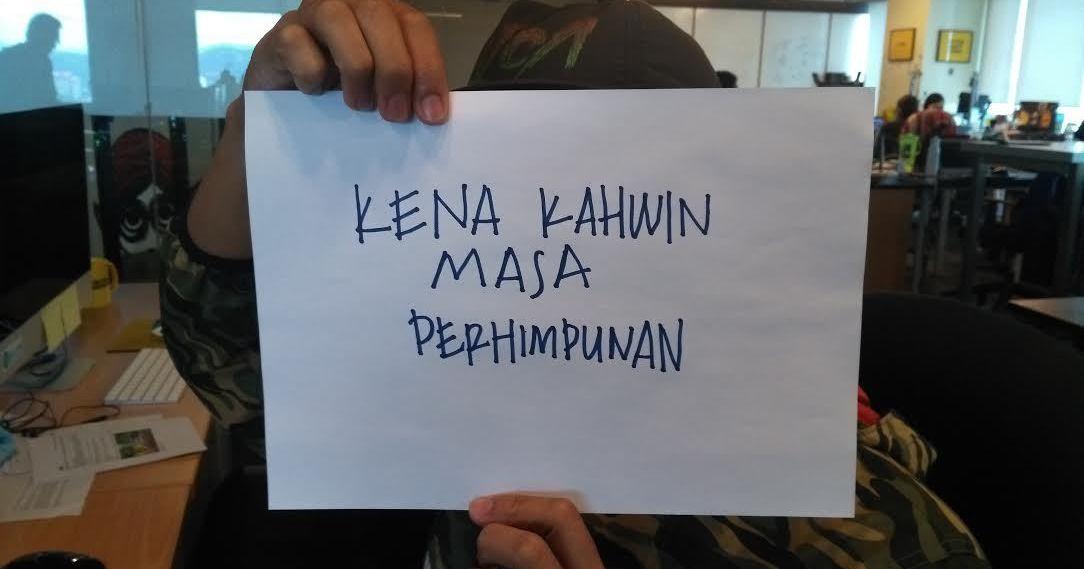 KENA KAHWIN
MASA
PERHIMPUNAN